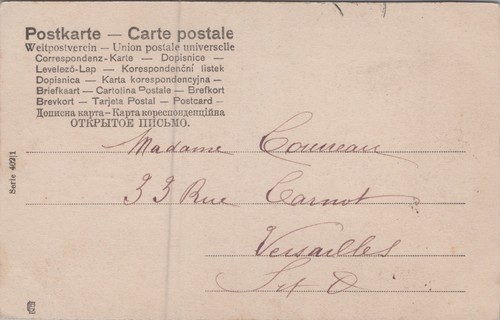 Postkarte — Carte postale
Weltpostverein — Union postale universelle
Correspondenz-Karte — Dopisnice —
Levelező-Lap — Korespondenční lístek
Dopisnica — Karta korespondencyjna —
Briefkaart — Cartolina Postale — Brefkort
Brevkort — Tarjeta Postal — Postcard —
Дописна карта — Карта кореспонденційна
ОТКРЫТОЕ ПИСЬМО.
Madame
33 Rue Carnot
Versailles
S et O
Serie 407/1